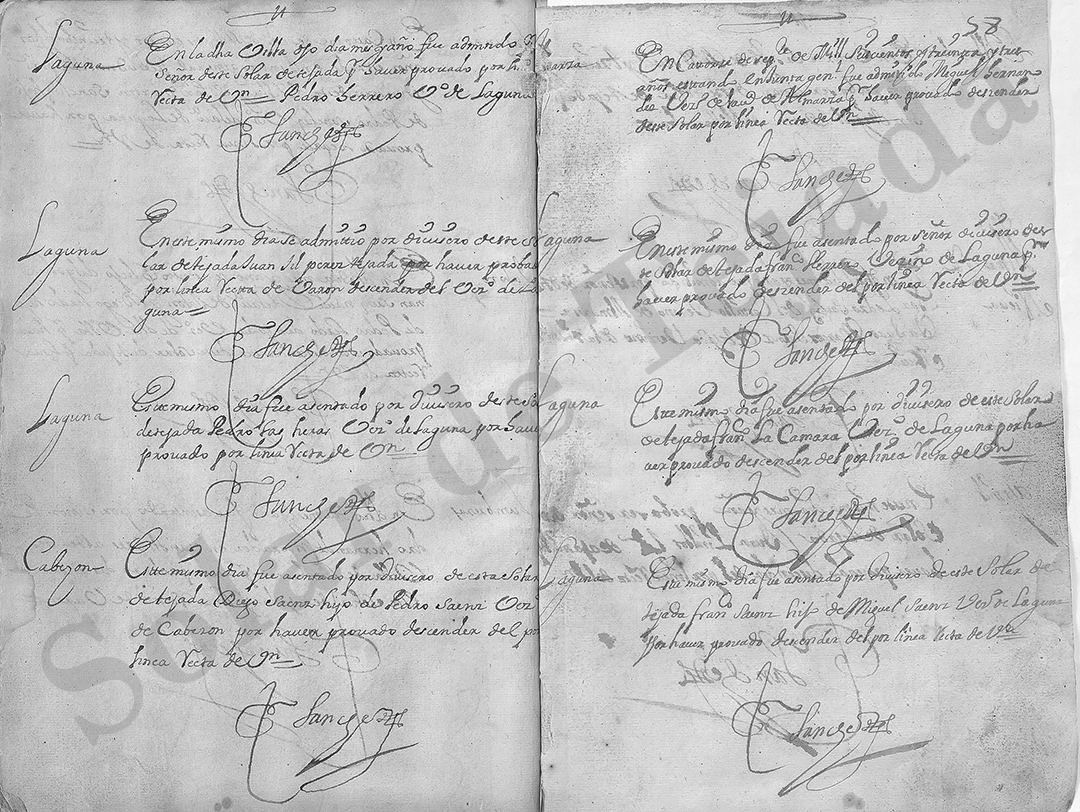 Laguna
En la dha Villa dho dia mes y año fue admitido
Señor deste Solar de tejada haver provado por
recta de Vn Pedro herrero Vº de Laguna
Sanchez
Laguna
En este mismo dia se admitio por divisero deste So
lar de tejada Juan Gil perez tejada por haver proba
por linea recta de Varon descender del Vezº de La
guna
Sanchez
Laguna
Este mismo dia fue asentado por divisero deste So
de tejada Pedro las heras Vezº de laguna por have
provado por linea recta de Vn
Sanchez
Cabezon
Este mismo dia fue asentado por divisero de este Solar
de tejada Diego Saenz hijo de Pedro Saenz Vez
de Cabezon por haver provado descender del po
linea recta de Vn
Sanchez
58
marza
En Catorze de de Mill Seiscientos y treinta y tres
años estando en Junta gen fue admitido Miguel hernan
dez Vezº de de Almarza haver provado descender
deste Solar por linea recta de Vn
Sanchez
Laguna
En este mismo dia fue asentado por señor divisero des
te Solar de tejada franº herrero Vezino de Laguna
haver provado descender del por linea recta de Vn
Sanchez
Laguna
Este mismo dia fue asentado por divisero de este Solar
de tejada franº La Camara Vezº de Laguna por ha
ver provado descender del por linea recta de Vn
Sanchez
Laguna
Este mismo dia fue asentado por divisero de este Solar de
tejada franº Saenz hijo de Miguel Saenz Vezº de Laguna
Por haver provado descender del por linea recta de Vn
Sanchez
Solar de Tejada